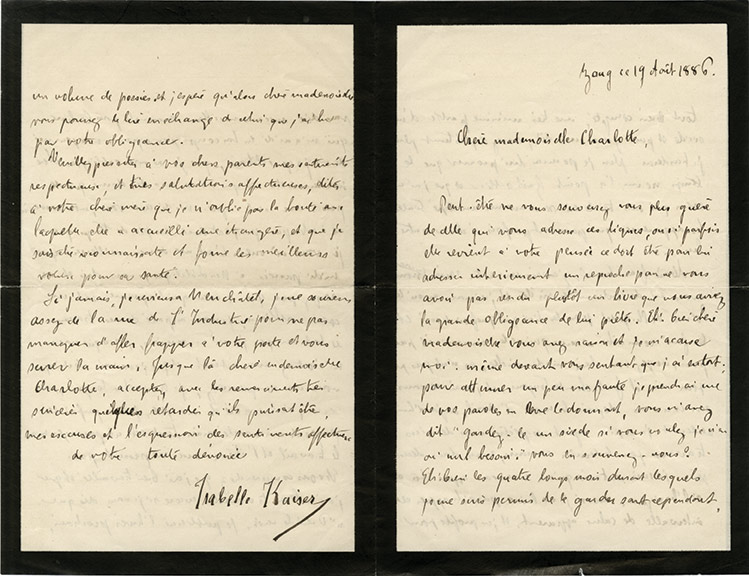 Zoug ce 19 Août 1886.
Chère mademoiselle Charlotte
Peut-être ne vous souvenez vous plus guère
de celle qui vous adresse ces lignes, ou si parfois
elle revient à votre pensée ce doit être pour lui
adresser intérieurement un reproche pour ne vous
avoir pas rendu plutôt un livre que vous aviez
la grande obligeance de lui prêter. Eh! bien chère
mademoiselle vous avez raison et je m'accuse
moi-même devant vous sentant que j'ai eu tort.
pour atténuer un peu ma faute je prendrai une
de vos paroles en me le donnant, vous m'avez
dit "gardez-le un siècle si vous voulez je n'en
ai nul besoin," vous en souvenez-vous?
Eh! bien les quatre longs mois durant lesquels
je me suis permis de le garder sont cependant,
un volume de poésies et j'espère qu'alors chère mademoiselle
vous pourrez le lire en échange de celui que j'ai lu
par votre obligeance.
Veuillez présenter à vos chers parents mes sentiments
respectueux, et mes salutations affectueuses, dites
à votre chère mère que je n'oublie pas la bonté avec
laquelle elle a accueilli une étrangère, et que je
suis reconnaissante et forme les meilleurs
voeux pour sa santé.
Si jamais, je reviens à Neuchâtel, je me souviens
assez de la rue de l'Industrie pour ne pas
manquer d'aller frapper à votre porte et vous
serrer la main, jusque là chère mademoiselle
Charlotte, acceptez, avec les remerciements très
sincères quelques retardés qu'ils puissent être,
mes excuses et l'expression des sentiments affectueux
de votre toute dévouée
Isabelle Kaiser